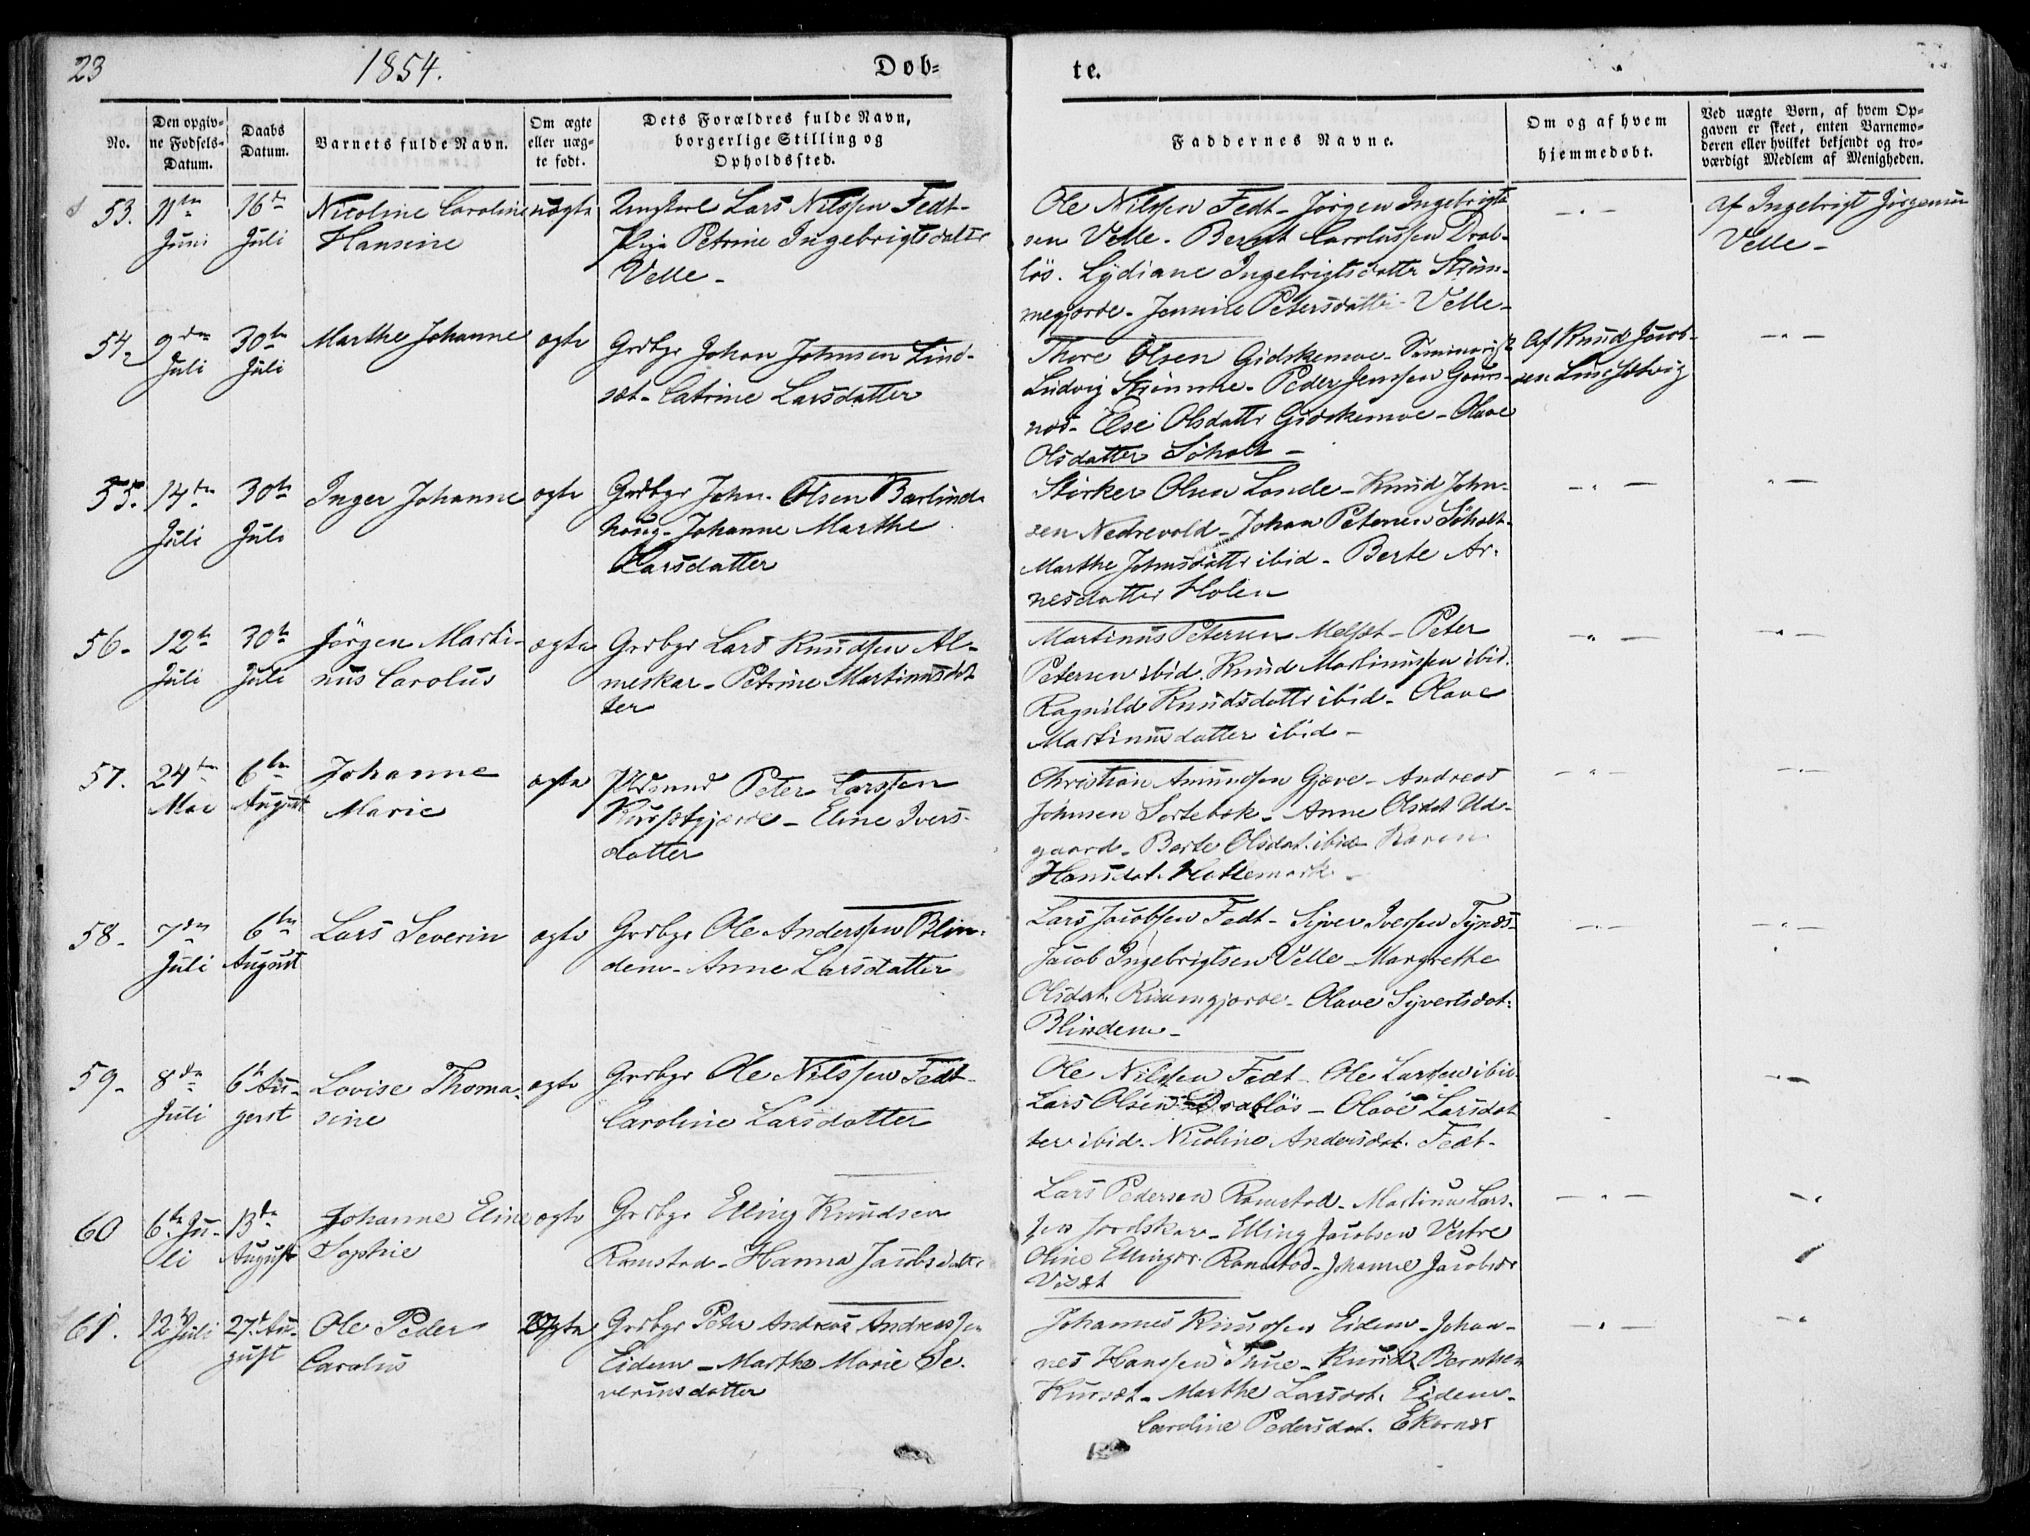 23
1854.
Døb-
te.
No.
Den opgiv-
ne Fødsels-
Datum.
Daabs
Datum.
Barnets fulde Navn.
Om ægte
eller uæg-
te født.
Dets Forældres fulde Navn,
borgerlige Stilling og
Opholdssted.
Faddernes Navne.
Om og af hvem
hjemmedøbt.
Ved uægte Børn, af hvem Op-
gaven er skeet, enten Barnemo-
deren eller hvilket bekjendt og tro-
værdigt Medlem af Menigheden.
53.
11te
Juni
16de
Juli
Nicoline Caroline
Hansine
uægte
Ungkarl Lars Nilssen Fedt-
Pige Petrine Ingebrigtsdatter
Velle -
Ole Nilssen Fedt - Jørgen Ingebrigt-
sen Velle - Bernt Carolussen Drab-
løs. Lydiane Ingebrigtsdatter Strøm-
megjerde - Jennine Petersdatter Velle -
Af Ingebrigt Jørgensen
Velle -
54.
9de
Juli
30te
Juli
Marthe Johanne
ægte
Grdbgr Johan Johnsen Lind-
sæt - Catrine Larsdatter
Thore Olsen Gidskemoe - Seminarist
Ludvig Strømme - Peder Jenssen Gaus-
næs - Else Olsdattr Gidskemoe - Olave
Olsdatter Søholt -
Af Knud Jacob-
sen
55.
14de
Juli
30te
Juli
Inger Johanne
ægte
Grdbgr John Olsen Barlind-
houg - Johanne Marthe
Larsdatter
Stirker Olsen Lande - Knud John-
sen Nedrevold - Johan Petersen Søholt -
Marthe Johnsdattr ibid - Berte Ar-
nesdatter Holen
56-
12te
Juli
30te
Juli
Jørgen Marti-
nus Carolus
ægte
Grdbgr Lars Knudssen Al-
meskar - Petrine Martinusdat
ter
Martinus Petersen Melsæt - Peter
Petersen ibid. Knud Martinussen ibid.
Ragnild Knudsdattr ibid - Olave
Martinusdatter ibid -
57.
24de
Mai
6te
August
Johanne
Marie
ægte
Pldsmd Peter Larssen
Kursætgjerde - Eline Ivers-
datter
Christian Amundsen Gjæve - Andreas
Johnsen Sortebok - Anne Olsdat Ud-
gaard - Berte Olsdat. ibid - Karen
Hansdat. Hattemark -
58-
7de
Juli
6te
August
Lars Severin
ægte
Grdbgr Ole Anderssen Blin-
dem - Anne Larsdatter
Lars Jacobsen Fedt - Siver Iverssen Tynæs -
Jacob Ingebrigtsen Velle - Margrethe
Olsdat. Riksemgjerde - Olave Syvertsdat.
Blindem -
59-
8de
Juli
6te Au-
gust
Lovise Thoma-
sine
ægte
Grdbgr Ole Nilssen Fedt -
Caroline Larsdatter
Ole Nilssen Fedt - Ole Larssen ibid.
Lars Olsen Drabløs - Olave Larsdat
ter ibid. Nicoline Andersdat. Fedt -
60
6te Ju-
li
13de
August
Johanne Eline
Sophie
ægte
Grdbgr Elling Knudsen
Ramstad - Hanna Jacobsdatter
Lars Pedersen Ramstad - Martinus Lars-
sen Jordskar - Elling Jacobsen Vestre
Oline Ellingsdr. Ramstad - Johanne Jacobsdr
Viset
61.
12te Juli
27de Au-
gust
Ole Peder
Carolus
Ægte
Grdbgr Peter Andreas Andreassen
Eidem - Marthe Marie Se-
verinsdatter
Johannes Knudssen Eidem - Johan-
nes Hanssen Thue - Knud Berntsen
Kursæt - Marthe Larsdat. Eidem -
Caroline Pedersdat. Ekornæs